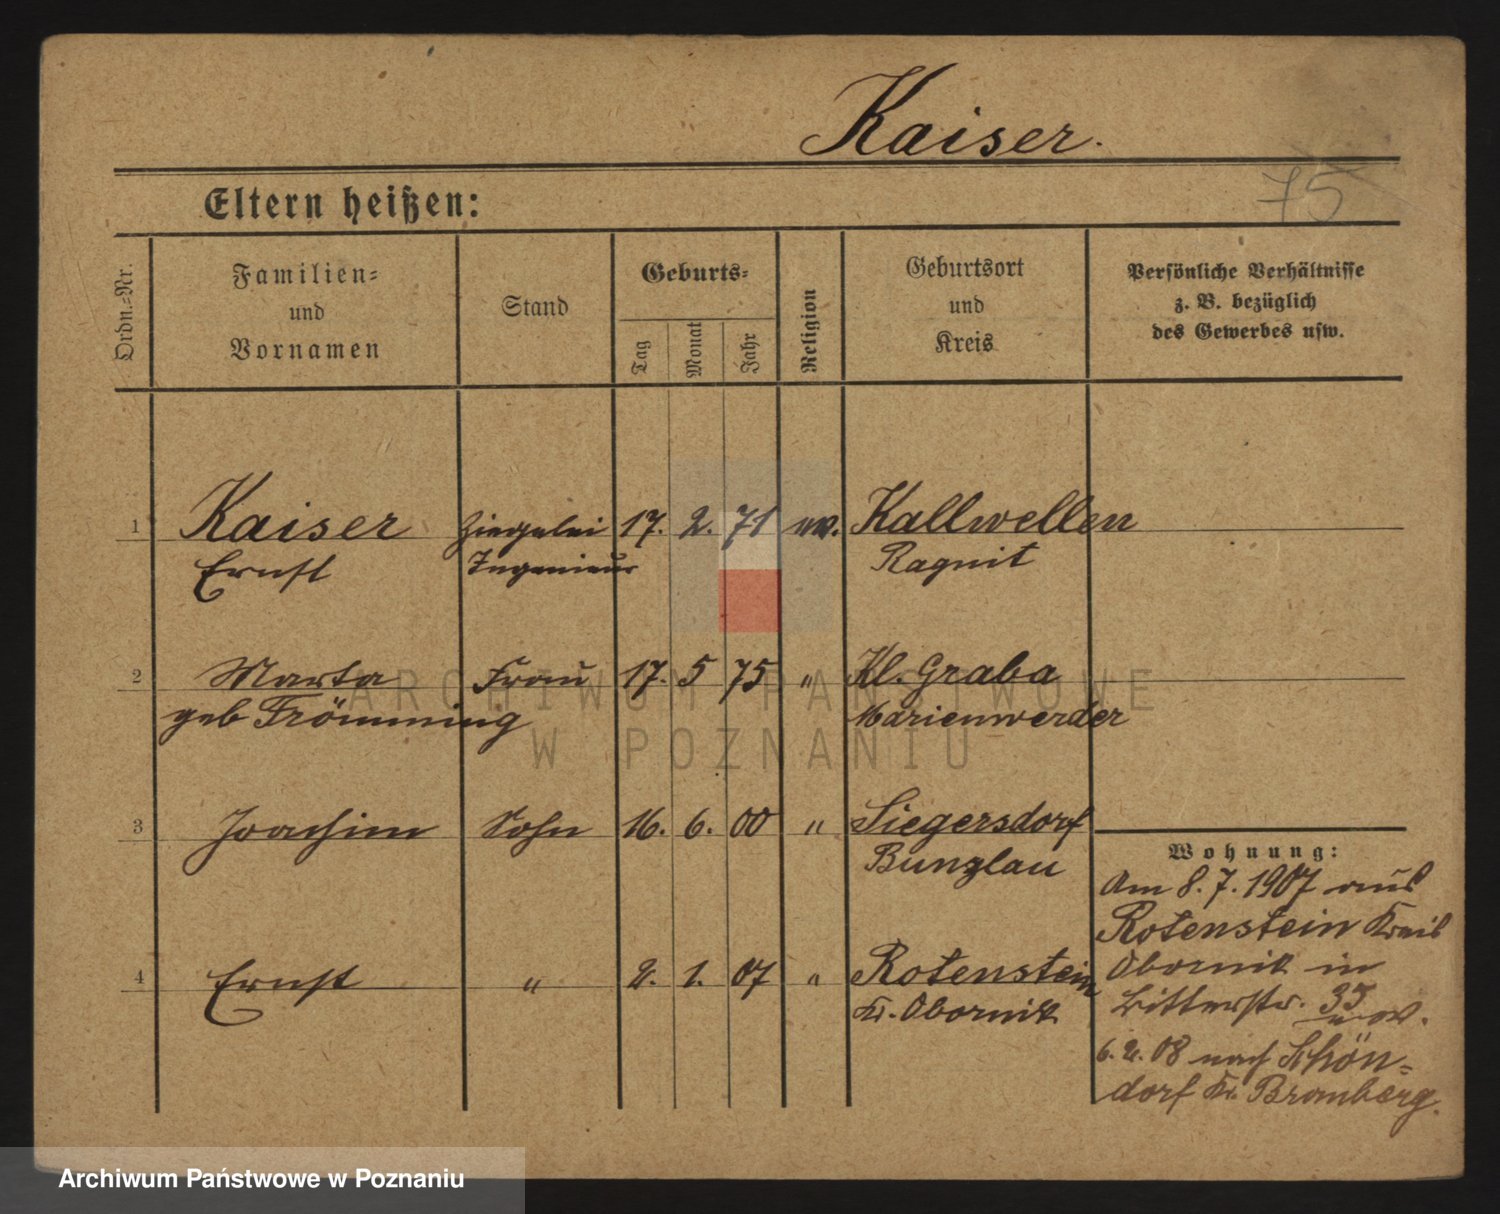 Kaiser.
75
Eltern heißen:
Ordn.-Nr.
Familien-
und
Vornamen
Stand
Geburts-
Tag
Monat
Jahr
Religion
Geburtsort
und
Kreis
Persönliche Verhältnisse
z. B. bezüglich
des Gewerbes usw.
1 Kaiser Ziegelei 17. 2. 71 ev. Kallwellen
Ernst Ingenieur Ragnit
2 Marta Frau 17. 5 75 " Kl. Graba
geb Frömming Marienwerder
3 Joachim Sohn 16. 6. 00 " Siegersdorf
Bunzlau
4 Ernst " 2. 1. 07 " Rotenstein
Kr. Obornik
Wohnung:
Am 8. 7. 1907 aus
Rotenstein Kreis
Obornik in
Ritterstr. 35
6. 2. 08 nach Schön-
dorf Kr. Bromberg.
ARCHIWUM PAŃSTWOWE
W POZNANIU
Archiwum Państwowe w Poznaniu